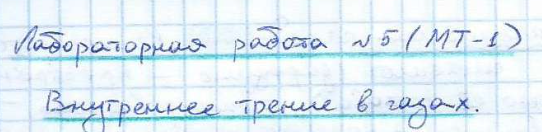 Лабораторная работа №5 (МТ-1)
Внутреннее трение в газах.